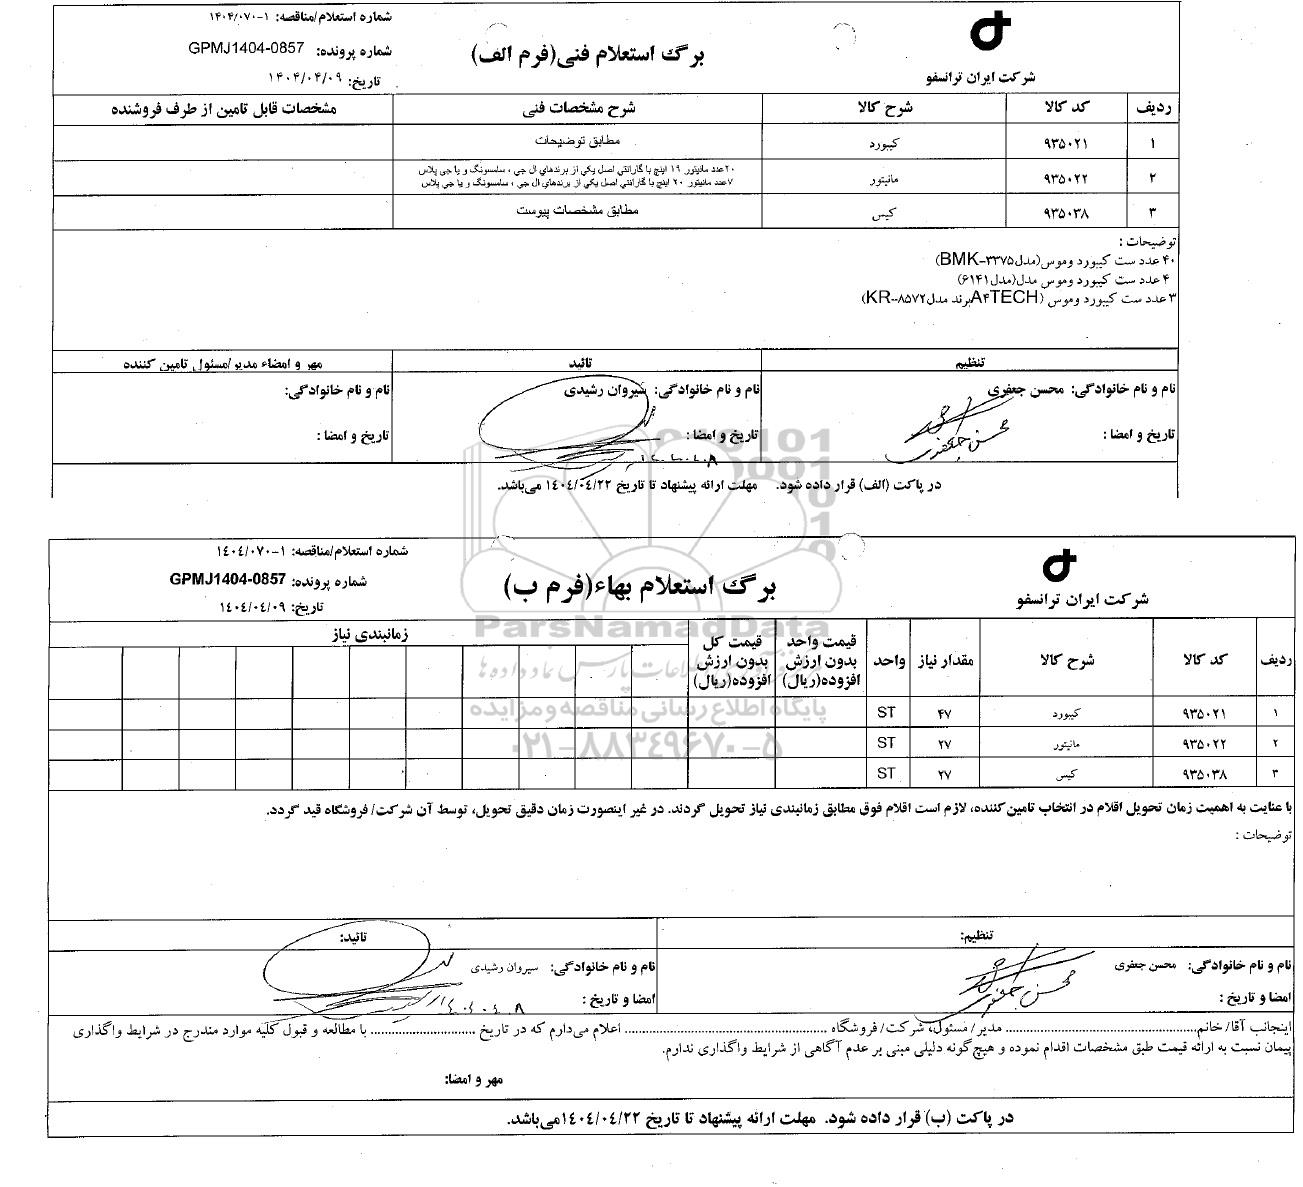 شماره استعلام/مناقصه: ۱-۱۴۰۴/۰۷۰
برگ استعلام فنی(فرم الف)
شماره پرونده: GPMJ1404-0857
تاریخ: ۱۴۰۴/۰۴/۰۹
شرکت ایران ترانسفو
ردیف کد کالا شرح کالا شرح مشخصات فنی مشخصات قابل تامین از طرف فروشنده
۱ ۹۳۵۰۲۱ کیبورد مطابق توضیحات
۲ ۹۳۵۰۲۲ مانیتور ۲۰عدد مانیتور ۱۹ اینچ با گارانتي اصل يكي از برندهاي ال جي ، سامسونگ و يا جي پلاس
۷عدد مانیتور ۲۰ اینچ با گارانتي اصل يكي از برندهاي ال جي ، سامسونگ و يا جي پلاس
۳ ۹۳۵۰۳۸ کیس مطابق مشخصات پیوست
توضیحات :
۴۰ عدد ست کیبورد وموس(مدل۳۳۷۵-BMK)
۴ عدد ست کیبورد وموس مدل(مدل۶۱۴۱)
۳عدد ست کیبورد وموس (A۴TECHبرند مدل۸۵۷۲-KR)
تنظیم تائید مهر و امضاء مدیر/مسئول تامین کننده
نام و نام خانوادگی: محسن جعفری نام و نام خانوادگی: سیروان رشیدی نام و نام خانوادگی:
تاریخ و امضا : تاریخ و امضا : تاریخ و امضا :
در پاکت (الف) قرار داده شود. مهلت ارائه پیشنهاد تا تاریخ ۱۴۰۴/۰۴/۲۲ می‌باشد.
شماره استعلام/مناقصه: ۱-۱۴۰۴/۰۷۰
برگ استعلام بهاء(فرم ب)
شماره پرونده: GPMJ1404-0857
تاریخ: ۱۴۰۴/۰۴/۰۹
شرکت ایران ترانسفو
ParsNamadData
پایگاه اطلاع رسانی مناقصه و مزایده
۰۲۱-۸۸۳۴۹۶۷۰-۵
ردیف کد کالا شرح کالا مقدار نیاز واحد قیمت واحد بدون ارزش افزوده(ریال) قیمت کل بدون ارزش افزوده(ریال) زمانبندی نیاز
۱ ۹۳۵۰۲۱ کیبورد ۴۷ ST
۲ ۹۳۵۰۲۲ مانیتور ۲۷ ST
۳ ۹۳۵۰۳۸ کیس ۲۷ ST
با عنایت به اهمیت زمان تحویل اقلام در انتخاب تامین‌کننده، لازم است اقلام فوق مطابق زمانبندی نیاز تحویل گردند. در غیر اینصورت زمان دقیق تحویل، توسط آن شرکت/ فروشگاه قید گردد.
توضیحات :
تنظیم: تائید:
نام و نام خانوادگی: محسن جعفری نام و نام خانوادگی: سیروان رشیدی
امضا و تاریخ : امضا و تاریخ :
اینجانب آقا/ خانم............ مدیر/ مسئول، شرکت/ فروشگاه ............ اعلام می‌دارم که در تاریخ ............ با مطالعه و قبول کلیه موارد مندرج در شرایط واگذاری
پیمان نسبت به ارائه قیمت طبق مشخصات اقدام نموده و هیچ‌گونه دلیلی مبنی بر عدم آگاهی از شرایط واگذاری ندارم.
مهر و امضا:
در پاکت (ب) قرار داده شود. مهلت ارائه پیشنهاد تا تاریخ ۱۴۰۴/۰۴/۲۲می‌باشد.